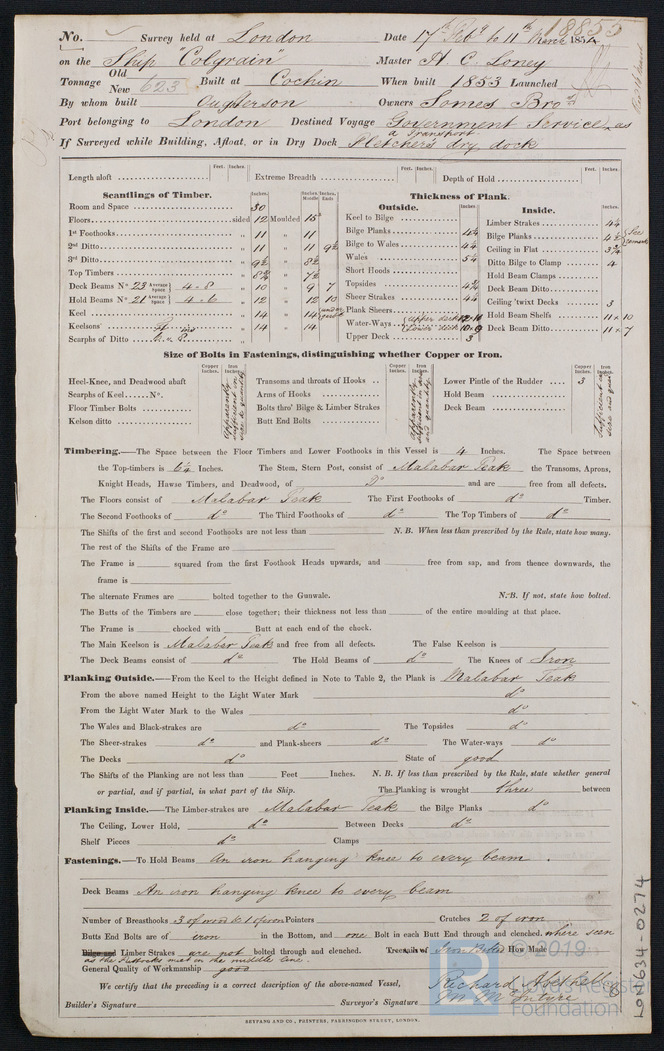 No. Survey held at London Date 17th Feby to 11th March 1854
18855
on the Ship "Colgrain" Master A. C. Loney
Tonnage Old New 623 Built at Cochin When built 1853 Launched
By whom built Owners Somes Bros
Port belonging to London Destined Voyage Government Service as
a Transport
If Surveyed while Building, Afloat, or in Dry Dock Fletcher's dry dock
Length aloft Feet. Inches. Extreme Breadth Feet. Inches. Depth of Hold Feet. Inches.
Scantlings of Timber.
Inches. Inches. Middle Inches. Ends
Room and Space 30
Floors sided 12 Moulded 15
1st Foothooks " 11 " 11
2nd Ditto " 11 " 11 9½
3rd Ditto " 9½ " 8½
Top Timbers " 8¾ " 7½
Deck Beams No 23 Average Space 4-8 " 10 " 9 7
Hold Beams No 21 Average Space 4-6 " 12 " 12 10
Keel " 14 " 14
Keelsons " 14 " 14
Scarphs of Ditto
Thickness of Plank.
Outside. Inches.
Keel to Bilge
Bilge Planks 4½
Bilge to Wales 4½
Wales 5½
Short Hoods
Topsides 4¾
Sheer Strakes 4½
Plank Sheers
Water-Ways upper deck 12-11 lower deck 10-9
Upper Deck 3
Inside. Inches.
Limber Strakes 4½
Bilge Planks 4½
Ceiling in Flat 3¾
Ditto Bilge to Clamp 4
Hold Beam Clamps
Deck Beam Ditto
Ceiling 'twixt Decks 3
Hold Beam Shelfs 11 x 10
Deck Beam Ditto 11 x 7
Size of Bolts in Fastenings, distinguishing whether Copper or Iron.
Copper Inches. Iron Inches. Copper Inches. Iron Inches. Copper Inches. Iron Inches.
Heel-Knee, and Deadwood abaft
Scarphs of Keel No.
Floor Timber Bolts
Kelson ditto
Apparently sufficient in size & quantity
Transoms and throats of Hooks
Arms of Hooks
Bolts thro' Bilge & Limber Strakes
Butt End Bolts
Apparently sufficient in size and quantity
Lower Pintle of the Rudder 3
Hold Beam
Deck Beam
Sufficient in size and
Timbering.—The Space between the Floor Timbers and Lower Foothooks in this Vessel is 4 Inches. The Space between
the Top-timbers is 6¼ Inches. The Stem, Stern Post, consist of Malabar Teak the Transoms, Aprons,
Knight Heads, Hawse Timbers, and Deadwood, of Do and are free from all defects.
The Floors consist of Malabar Teak The First Foothooks of do Timber.
The Second Foothooks of do The Third Foothooks of do The Top Timbers of do
The Shifts of the first and second Foothooks are not less than N. B. When less than prescribed by the Rule, state how many.
The rest of the Shifts of the Frame are
The Frame is squared from the first Foothook Heads upwards, and free from sap, and from thence downwards, the
frame is
The alternate Frames are bolted together to the Gunwale. N. B. If not, state how bolted.
The Butts of the Timbers are close together; their thickness not less than of the entire moulding at that place.
The Frame is chocked with Butt at each end of the chock.
The Main Keelson is Malabar Teak and free from all defects. The False Keelson is
The Deck Beams consist of do The Hold Beams of do The Knees of Iron
Planking Outside.—From the Keel to the Height defined in Note to Table 2, the Plank is Malabar Teak
From the above named Height to the Light Water Mark do
From the Light Water Mark to the Wales do
The Wales and Black-strakes are do The Topsides do
The Sheer-strakes do and Plank-sheers do The Water-ways do
The Decks do State of good
The Shifts of the Planking are not less than Feet Inches. N. B. If less than prescribed by the Rule, state whether general
or partial, and if partial, in what part of the Ship. The Planking is wrought three between
Planking Inside.—The Limber-strakes are Malabar Teak the Bilge Planks do
The Ceiling, Lower Hold, do Between Decks do
Shelf Pieces do Clamps
Fastenings.—To Hold Beams An iron hanging knee to every beam.
Deck Beams An iron hanging knee to every beam
Number of Breasthooks 3 of wood & 1 of iron Pointers Crutches 2 of iron
Butts End Bolts are of iron in the Bottom, and one Bolt in each Butt End through and clenched. where seen
Bilge and Limber Strakes are not bolted through and clenched. Treenails of Iron Bolted How Made
as the Futtocks meet on the middle line.
General Quality of Workmanship good
We certify that the preceding is a correct description of the above-named Vessel,
Builder's Signature Surveyor's Signature Richard Abethell
LON634-0274
© 2019
Lloyd's Register
Foundation
SEYFANG AND CO., PRINTERS, FARRINGDON STREET, LONDON.